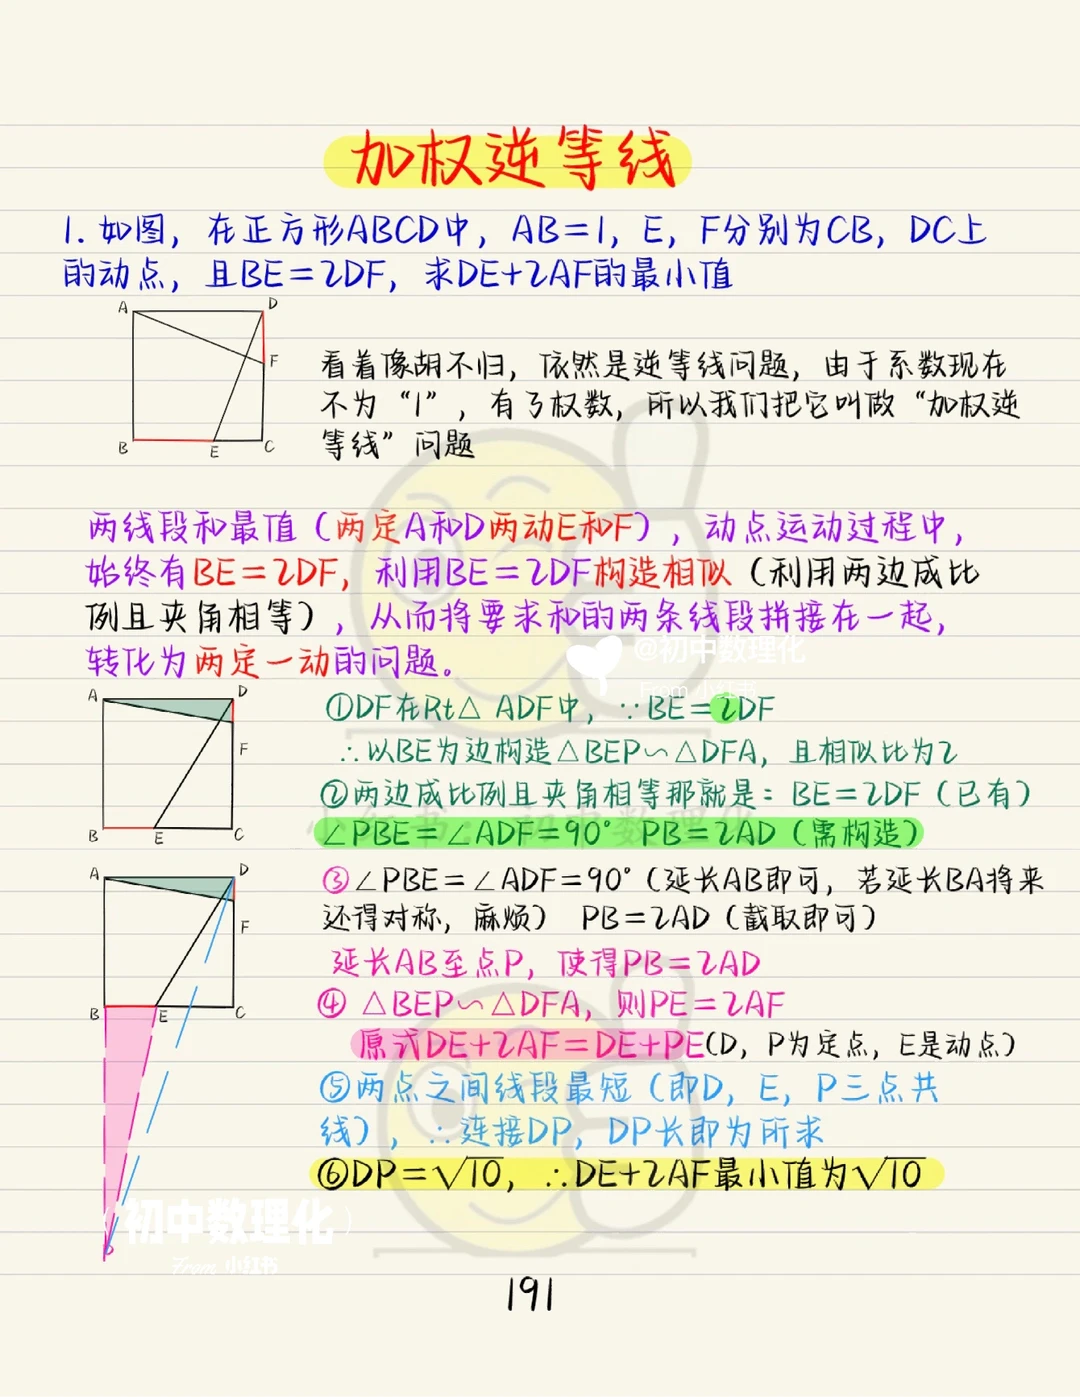 加权逆等线
1. 如图，在正方形ABCD中，AB=1，E，F分别为CB，DC上
的动点，且BE=2DF，求DE+2AF的最小值
A D
F
B E C
看着像胡不归，依然是逆等线问题，由于系数现在
不为“1”，有了权数，所以我们把它叫做“加权逆
等线”问题
两线段和最值（两定A和D两动E和F），动点运动过程中，
始终有BE=2DF，利用BE=2DF构造相似（利用两边成比
例且夹角相等），从而将要求和的两条线段拼接在一起，
转化为两定一动的问题。
@初中数理化
From 小红书
A D
F
B E C
①DF在Rt△ ADF中，∵BE=2DF
∴以BE为边构造△BEP∽△DFA，且相似比为2
②两边成比例且夹角相等那就是：BE=2DF（已有）
∠PBE=∠ADF=90° PB=2AD（需构造）
A D
F
B E C
P
③∠PBE=∠ADF=90°（延长AB即可，若延长BA将来
还得对称，麻烦） PB=2AD（截取即可）
延长AB至点P，使得PB=2AD
④ △BEP∽△DFA，则PE=2AF
原式DE+2AF=DE+PE(D，P为定点，E是动点）
⑤两点之间线段最短（即D，E，P三点共
线），∴连接DP，DP长即为所求
⑥DP=√10，∴DE+2AF最小值为√10
初中数理化
From 小红书
191